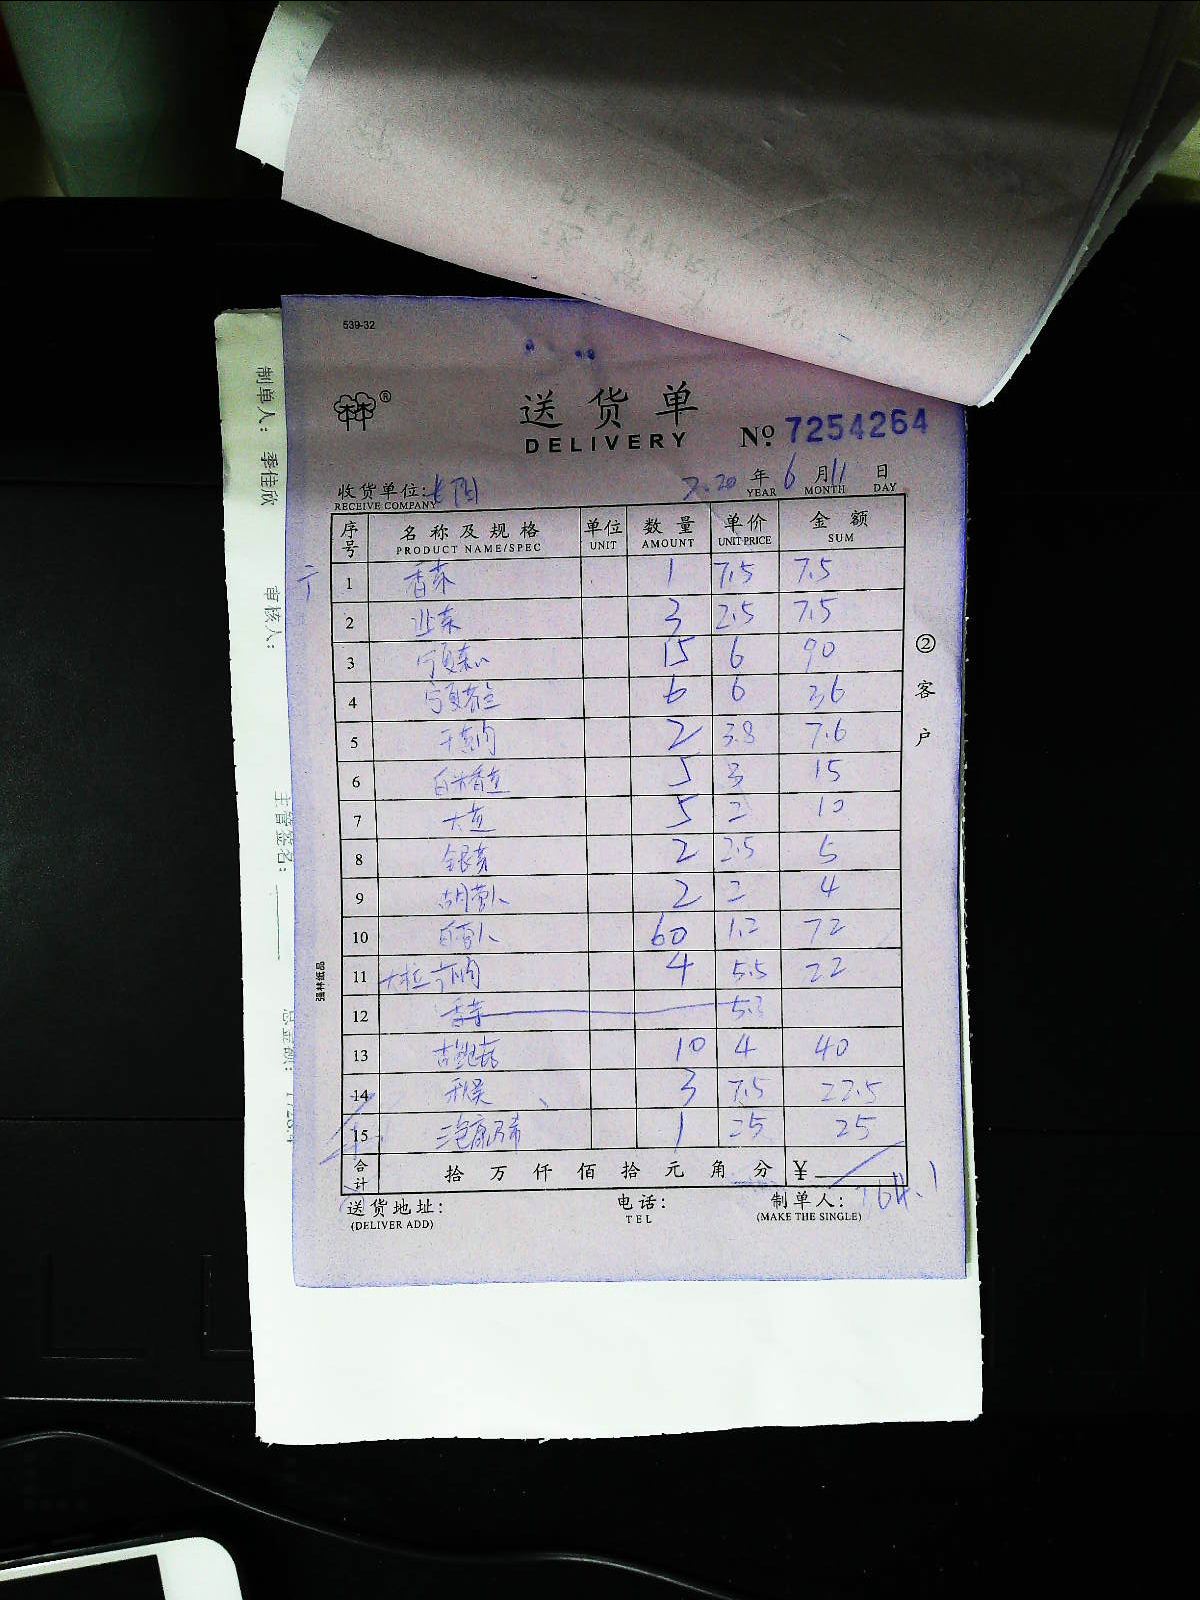 539-32
林®
送货单
DELIVERY
No. 7254264
收货单位:
RECEIVE COMPANY
20 年 6 月 11 日
YEAR MONTH DAY
序号 名称及规格 单位 数量 单价 金额
PRODUCT NAME/SPEC UNIT AMOUNT UNIT PRICE SUM
1 香菜 1 7.5 7.5
2 韭菜 3 2.5 7.5
3 宁夏菜心 15 6 90
4 宁夏芥兰 6 6 36
5 3.8 7.6
6 5 3 15
7 5 2 10
8 银芽 2 2.5 5
9 胡萝卜 2 2 4
10 白萝卜 60 1.2 72
11 4 5.5 22
12 香芹
13 10 4 40
14 3 7.5 22.5
15 1 25 25
合计 拾 万 仟 佰 拾 元 角 分 ¥
送货地址: 电话: 制单人:
(DELIVER ADD) TEL (MAKE THE SINGLE)
②客户
强林纸品
制单人: 季佳欣
审核人:
主管签名:
总金额: